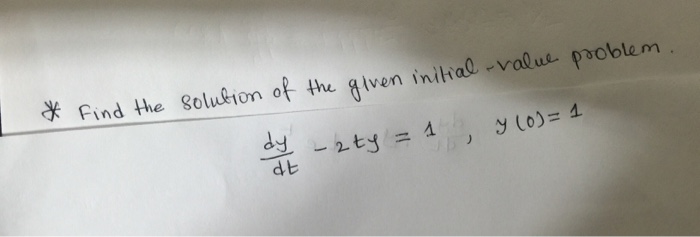 * Find the solution of the given initial-value problem.
dy/dt - 2ty = 1 , y(0) = 1